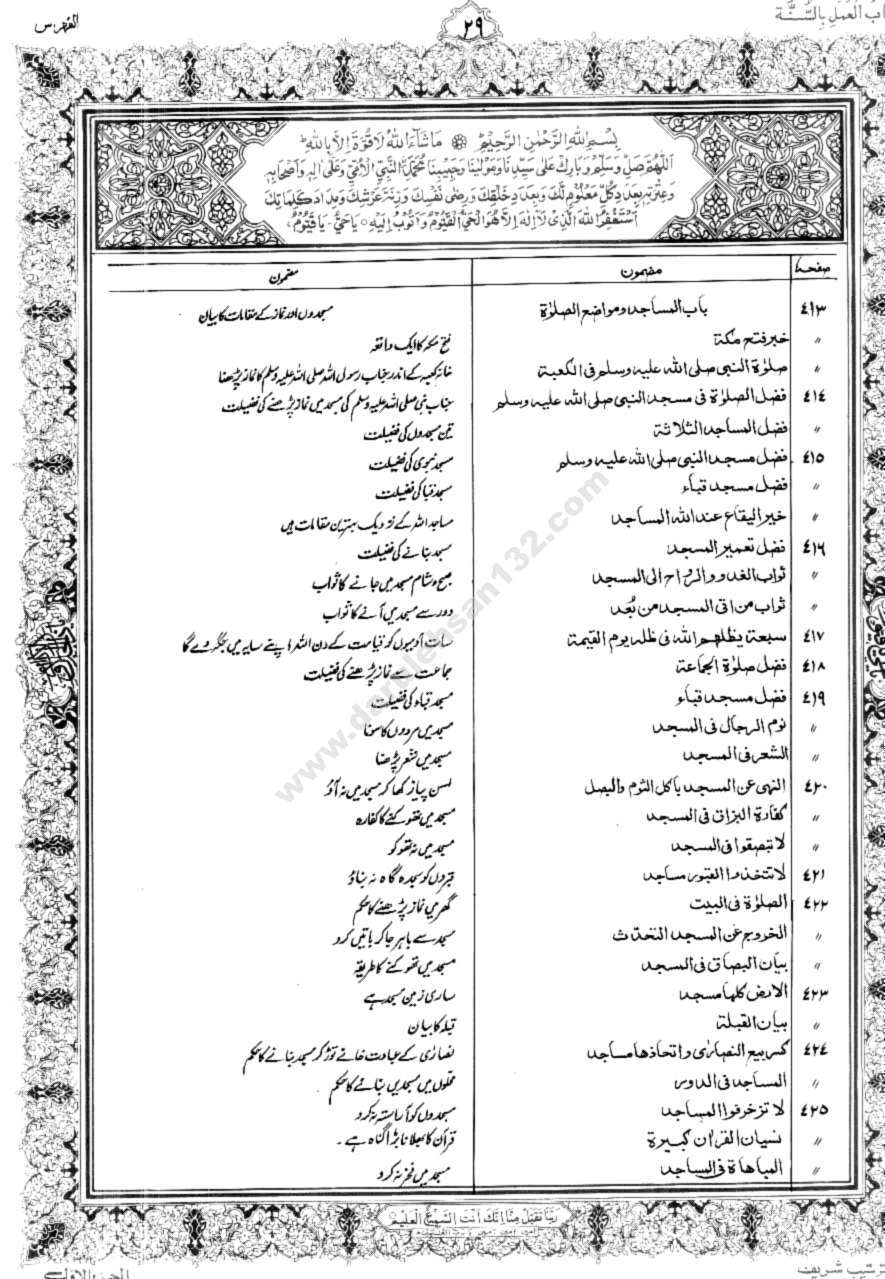 كتاب العمل بالسنة
٢٩
الفهرس
بسم الله الرحمن الرحيم ما شاء الله لا قوة الا بالله
اللهم صل وسلم وبارك على سيدنا ومولانا وحبيبنا محمد النبي الامي وعلى اله واصحابه
وعترته بعدد كل معلوم لك وبعدد خلقك ورضى نفسك وزنة عرشك ومداد كلماتك
استغفر الله الذي لا اله الا هو الحي القيوم واتوب اليه يا حي يا قيوم
صفحہ مضمون مضمون
٤١٣ باب المساجد ومواضع الصلوٰة مسجدوں اور نماز کے مقامات کا بیان
〃 خبر فتح مكة فتح مکہ کا ایک واقعہ
〃 صلوٰة النبى صلى الله عليه وسلم فى الكعبة خانہ کعبہ کے اندر جناب رسول اللہ صلی اللہ علیہ وسلم کا نماز پڑھنا
٤١٤ فضل الصلوٰة فى مسجد النبى صلى الله عليه وسلم جناب نبی صلی اللہ علیہ وسلم کی مسجد میں نماز پڑھنے کی فضیلت
〃 فضل المساجد الثلاثة تین مسجدوں کی فضیلت
٤١٥ فضل مسجد النبى صلى الله عليه وسلم مسجد نبوی کی فضیلت
〃 فضل مسجد قباء مسجد قبا کی فضیلت
〃 خير البقاع عند الله المساجد مساجد اللہ کے نزدیک بہترین مقامات ہیں
٤١٦ فضل تعمير المسجد مسجد بنانے کی فضیلت
〃 ثواب الغدو والرواح الى المسجد صبح و شام مسجد میں جانے کا ثواب
〃 ثواب من اتى المسجد من بُعد دور سے مسجد میں آنے کا ثواب
٤١٧ سبعة يظلهم الله فى ظله يوم القيمة سات آدمیوں کو قیامت کے دن اللہ اپنے سایہ میں جگہ دے گا
٤١٨ فضل صلوٰة الجماعة جماعت سے نماز پڑھنے کی فضیلت
٤١٩ فضل مسجد قباء مسجد قباء کی فضیلت
〃 نوم الرجال فى المسجد مسجد میں مردوں کا سونا
〃 الشعر فى المسجد مسجد میں شعر پڑھنا
٤٢٠ النهى عن المسجد بأكل الثوم والبصل لسن پیاز کھا کر مسجد میں نہ آؤ
〃 كفارة البزاق فى المسجد مسجد میں تھوکنے کا کفارہ
〃 لا تبصقوا فى المسجد مسجد میں نہ تھوکو
٤٢١ لا تتخذوا القبور مساجد قبروں کو سجدہ گاہ نہ بناؤ
٤٢٢ الصلوٰة فى البيت گھر میں نماز پڑھنے کا حکم
〃 الخروج عن المسجد التحدّث مسجد سے باہر جا کر باتیں کرو
〃 بيان البصاق فى المسجد مسجد میں تھوکنے کا طریقہ
٤٢٣ الارض كلها مسجد ساری زمین مسجد ہے
〃 بيان القبلة قبلہ کا بیان
٤٢٤ كسر بيع النصارٰى واتخاذها مساجد نصارٰی کے عبادت خانے توڑ کر مسجد بنانے کا حکم
〃 المساجد فى الدور محلّوں میں مسجدیں بنانے کا حکم
٤٢٥ لا تزخرفوا المساجد مسجدوں کو آراستہ نہ کرو
〃 نسيان القراٰن كبيرة قرآن کا بھلانا بڑا گناہ ہے۔
〃 المباهاة فى المساجد مسجد میں فخر نہ کرو
ربنا تقبل منا انك انت السميع العليم
ترتيب شريف
الجزء الاول
www.darulehsan132.com